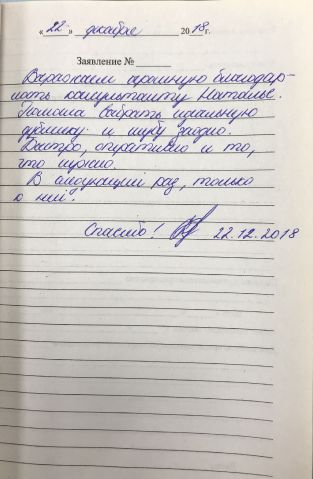 « 22 » декабря 2018 г.
Заявление № ______
Выражаем огромную благодар-
ность консультанту Наталье.
Помогла выбрать идеальную
дубленку и шубу заодно.
Быстро, оперативно и то,
что нужно.
В следующий раз, только
к ней!
Спасибо! 22.12.2018